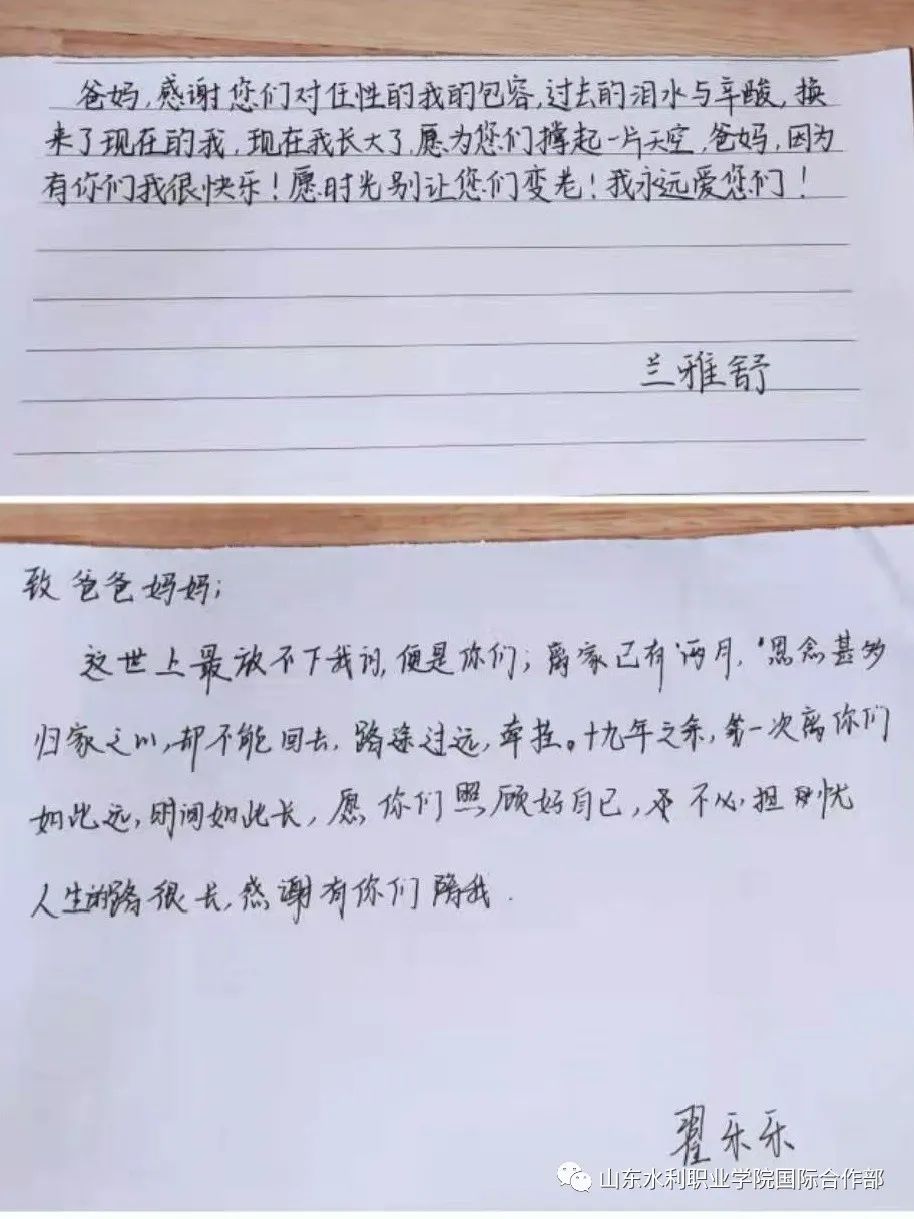 爸妈,感谢您们对任性的我的包容,过去的泪水与辛酸,换
来了现在的我,现在我长大了,愿为您们撑起一片天空,爸妈,因为
有你们我很快乐!愿时光别让您们变老!我永远爱您们!
兰雅舒
致爸爸妈妈;
这世上最放不下我的,便是你们;离家已有两月,思念甚多
归家之心,却不能回去,路途过远,牵挂。十九年之余,第一次离你们
如此远,时间如此长,愿你们照顾好自己,不必担忧
人生的路很长,感谢有你们陪我.
翟乐乐
山东水利职业学院国际合作部